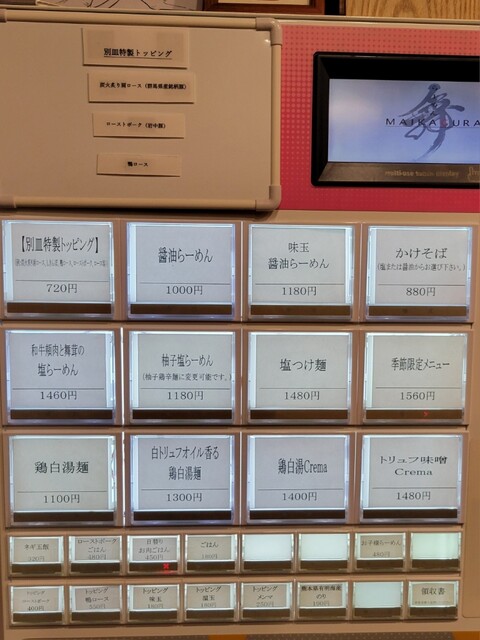 別皿特製トッピング
炭火炙り肩ロース（群馬県産銘柄豚）
ローストポーク（府中豚）
鴨ロース
舞
MAIKAGURA
【別皿特製トッピング】
720円
醤油らーめん
1000円
味玉
醤油らーめん
1180円
かけそば
（塩または醤油からお選び下さい。）
880円
和牛頬肉と舞茸の
塩らーめん
1460円
柚子塩らーめん
（柚子鶏辛麺に変更可能です。）
1180円
塩つけ麺
1480円
季節限定メニュー
1560円
鶏白湯麺
1100円
白トリュフオイル香る
鶏白湯麺
1300円
鶏白湯Crema
1400円
トリュフ味噌
Crema
1480円
ネギ玉飯
ローストポーク
ごはん
480円
日替り
お肉ごはん
450円
ごはん
お子様らーめん
トッピング
ローストポーク
400円
トッピング
鴨ロース
550円
トッピング
味玉
180円
トッピング
塩玉
トッピング
メンマ
250円
熊本県有明海産
のり
領収書